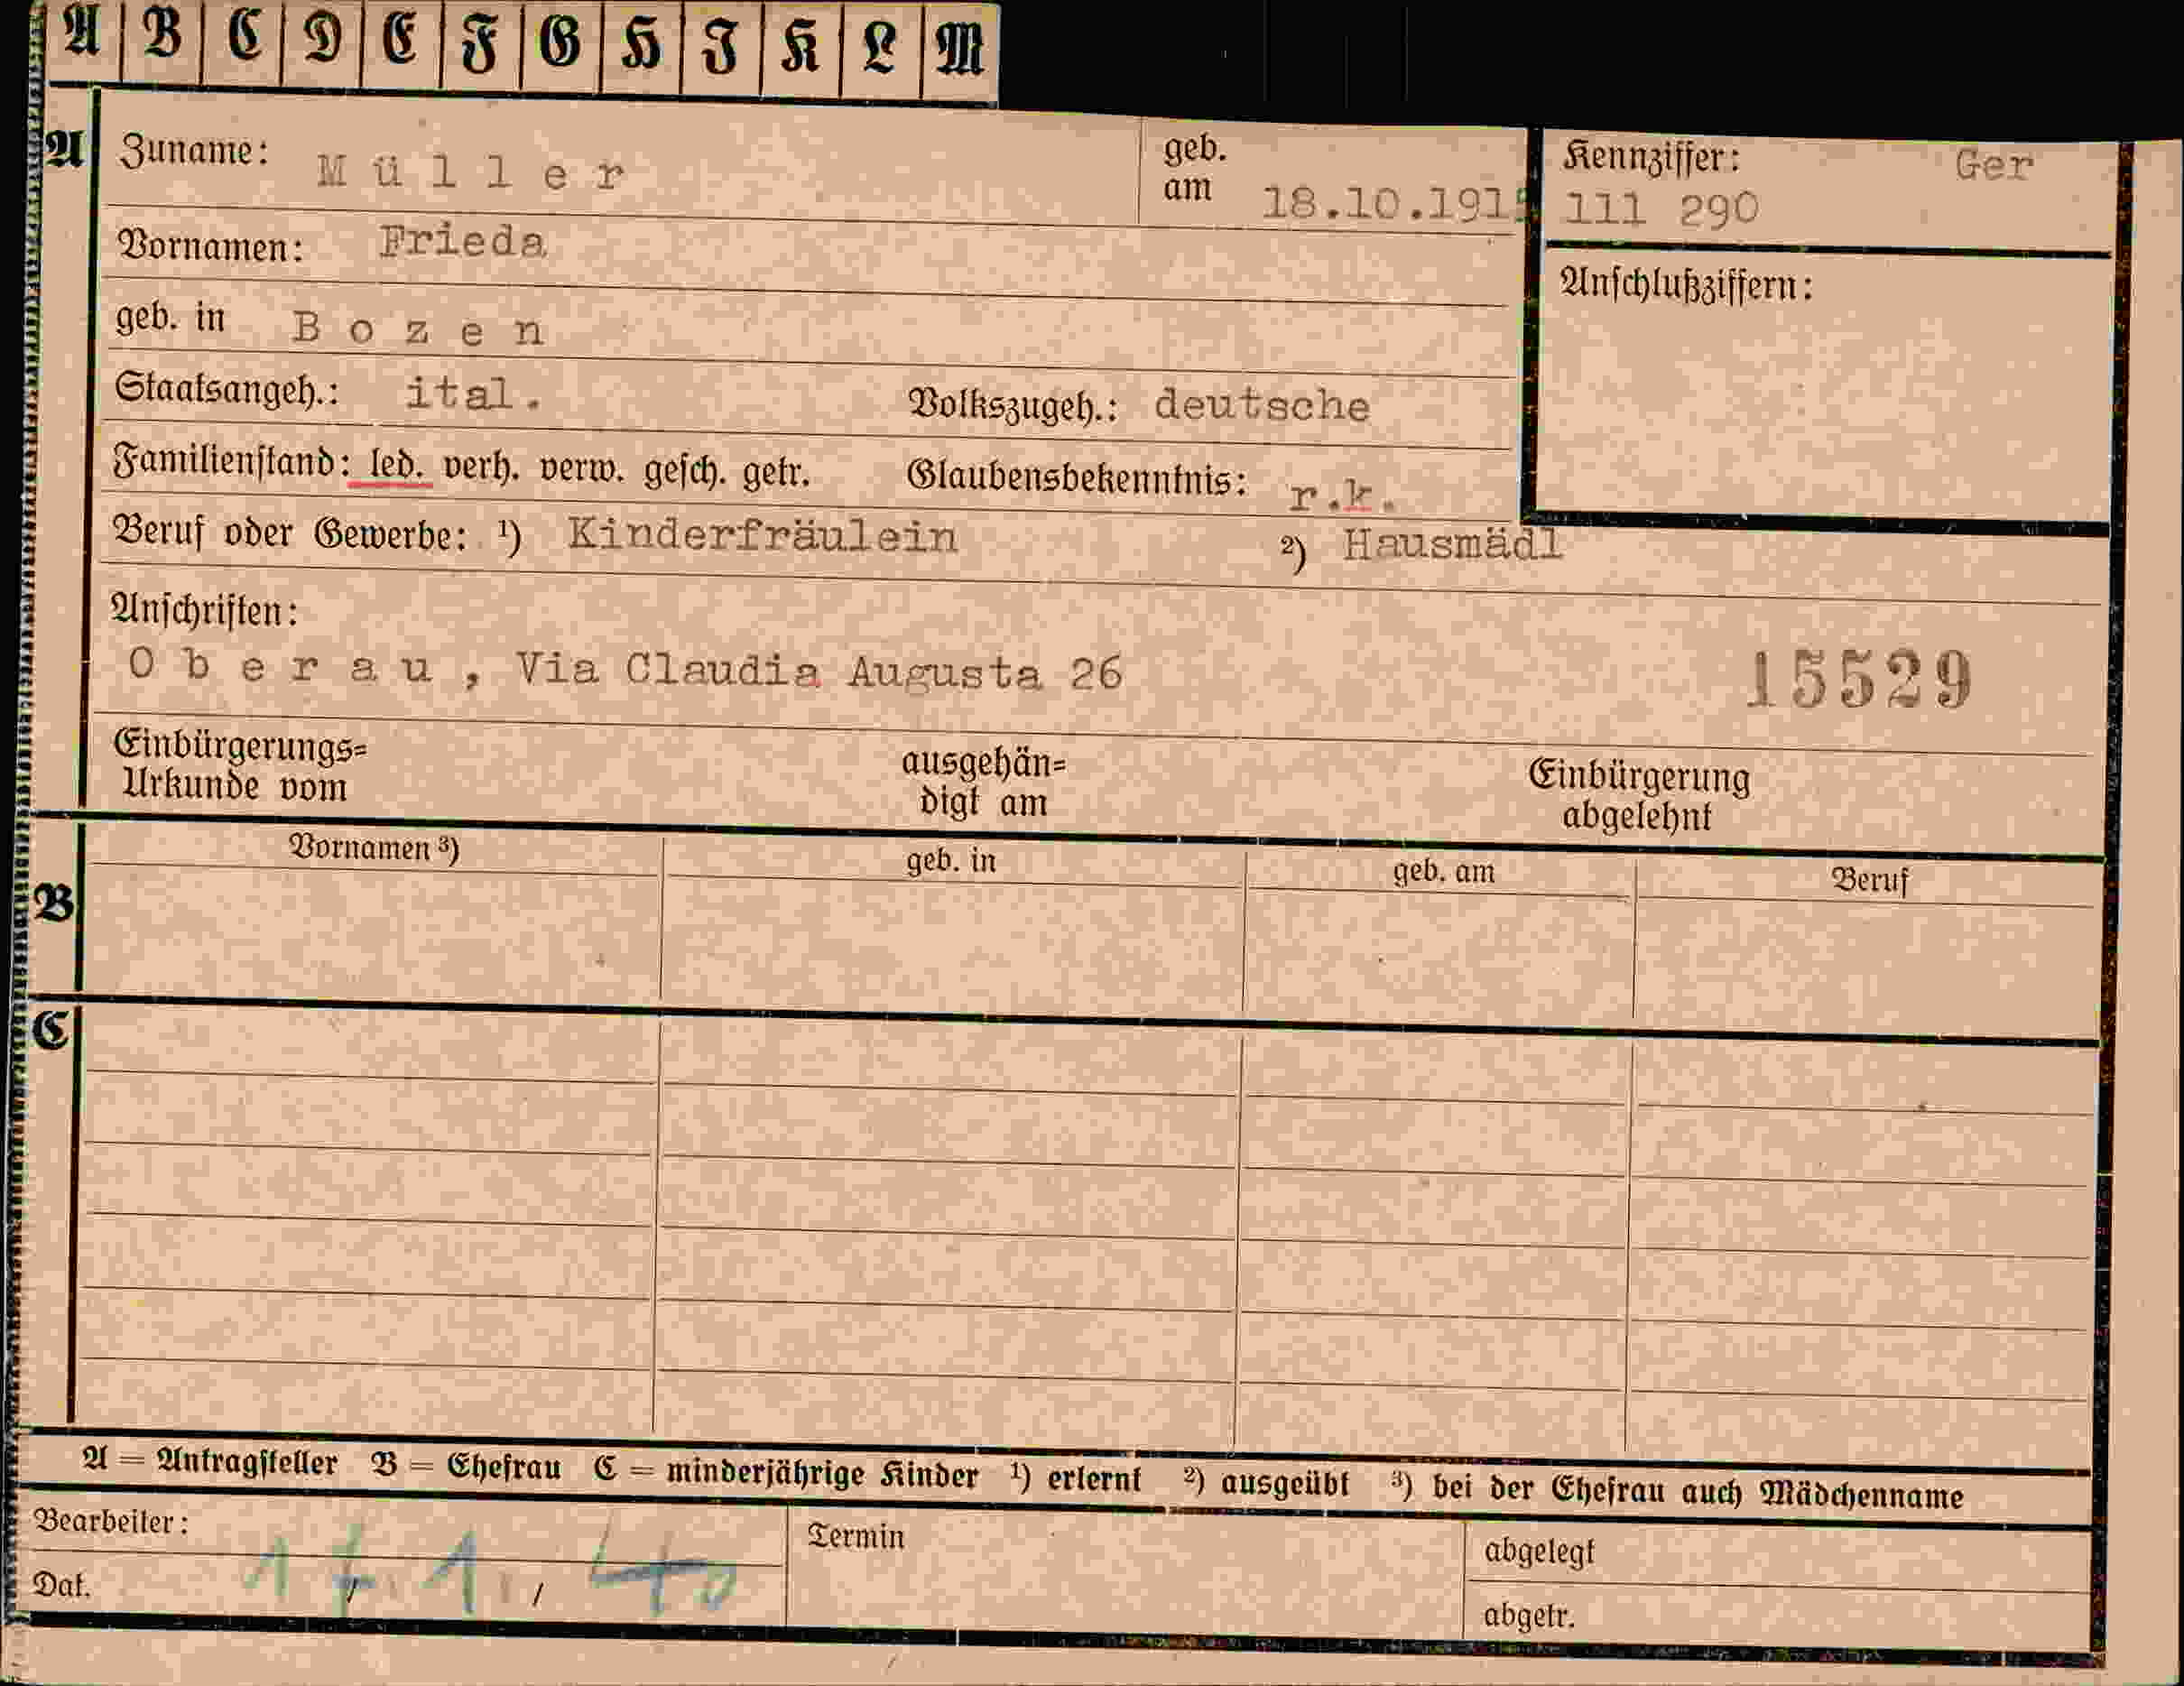 A B C D E F G H I K L M
A Zuname: Müller geb. am 18.10.191 Kennziffer: Ger
111 290
Vornamen: Frieda
Anschlußziffern:
geb. in Bozen
Staatsangeh.: ital. Volkszugeh.: deutsche
Familienstand: led. verh. verw. gesch. getr. Glaubensbekenntnis: r.k.
Beruf oder Gewerbe: ¹) Kinderfräulein ²) Hausmädl
Anschriften:
Oberau, Via Claudia Augusta 26 15529
Einbürgerungs= ausgehän= Einbürgerung
Urkunde vom digt am abgelehnt
Vornamen ³) geb. in geb. am Beruf
B
C
A = Antragsteller B = Ehefrau C = minderjährige Kinder ¹) erlernt ²) ausgeübt ³) bei der Ehefrau auch Mädchenname
Bearbeiter: Termin abgelegt
Dat. 17/1/40
abgetr.